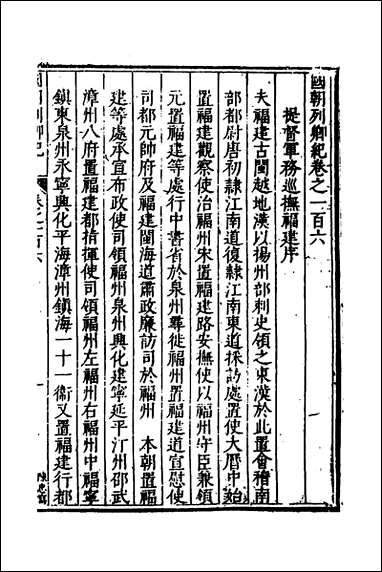 國朝列卿紀卷之一百六
提督軍務巡撫福建序
夫福建古閩越地漢以揚州部刺史領之東漢於此置會稽南
部都尉唐初隸江南道復隸江南東道採訪處置使大曆中始
置福建觀察使治福州宋置福建路安撫使以福州守臣兼領
元置福建等處行中書省於泉州尋徙福州置福建道宣慰使
司都元帥府及福建閩海道肅政廉訪司於福州　本朝置福
建等處承宣布政使司領福州泉州興化建寧延平汀州邵武
漳州八府置福建都指揮使司領福州左福州右福州中福寧
鎮東泉州永寧興化平海漳州鎮海一十一衞又置福建行都